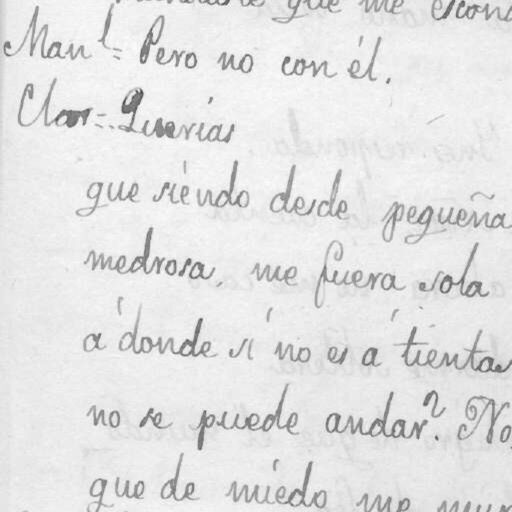 que me escond
Man^l= Pero no con él.
Clar= Querias
que siéndo desde pequeña
medrosa, me fuera sola
á donde sí no es á tientas
no se puede andar? No,
que de miédo me mur